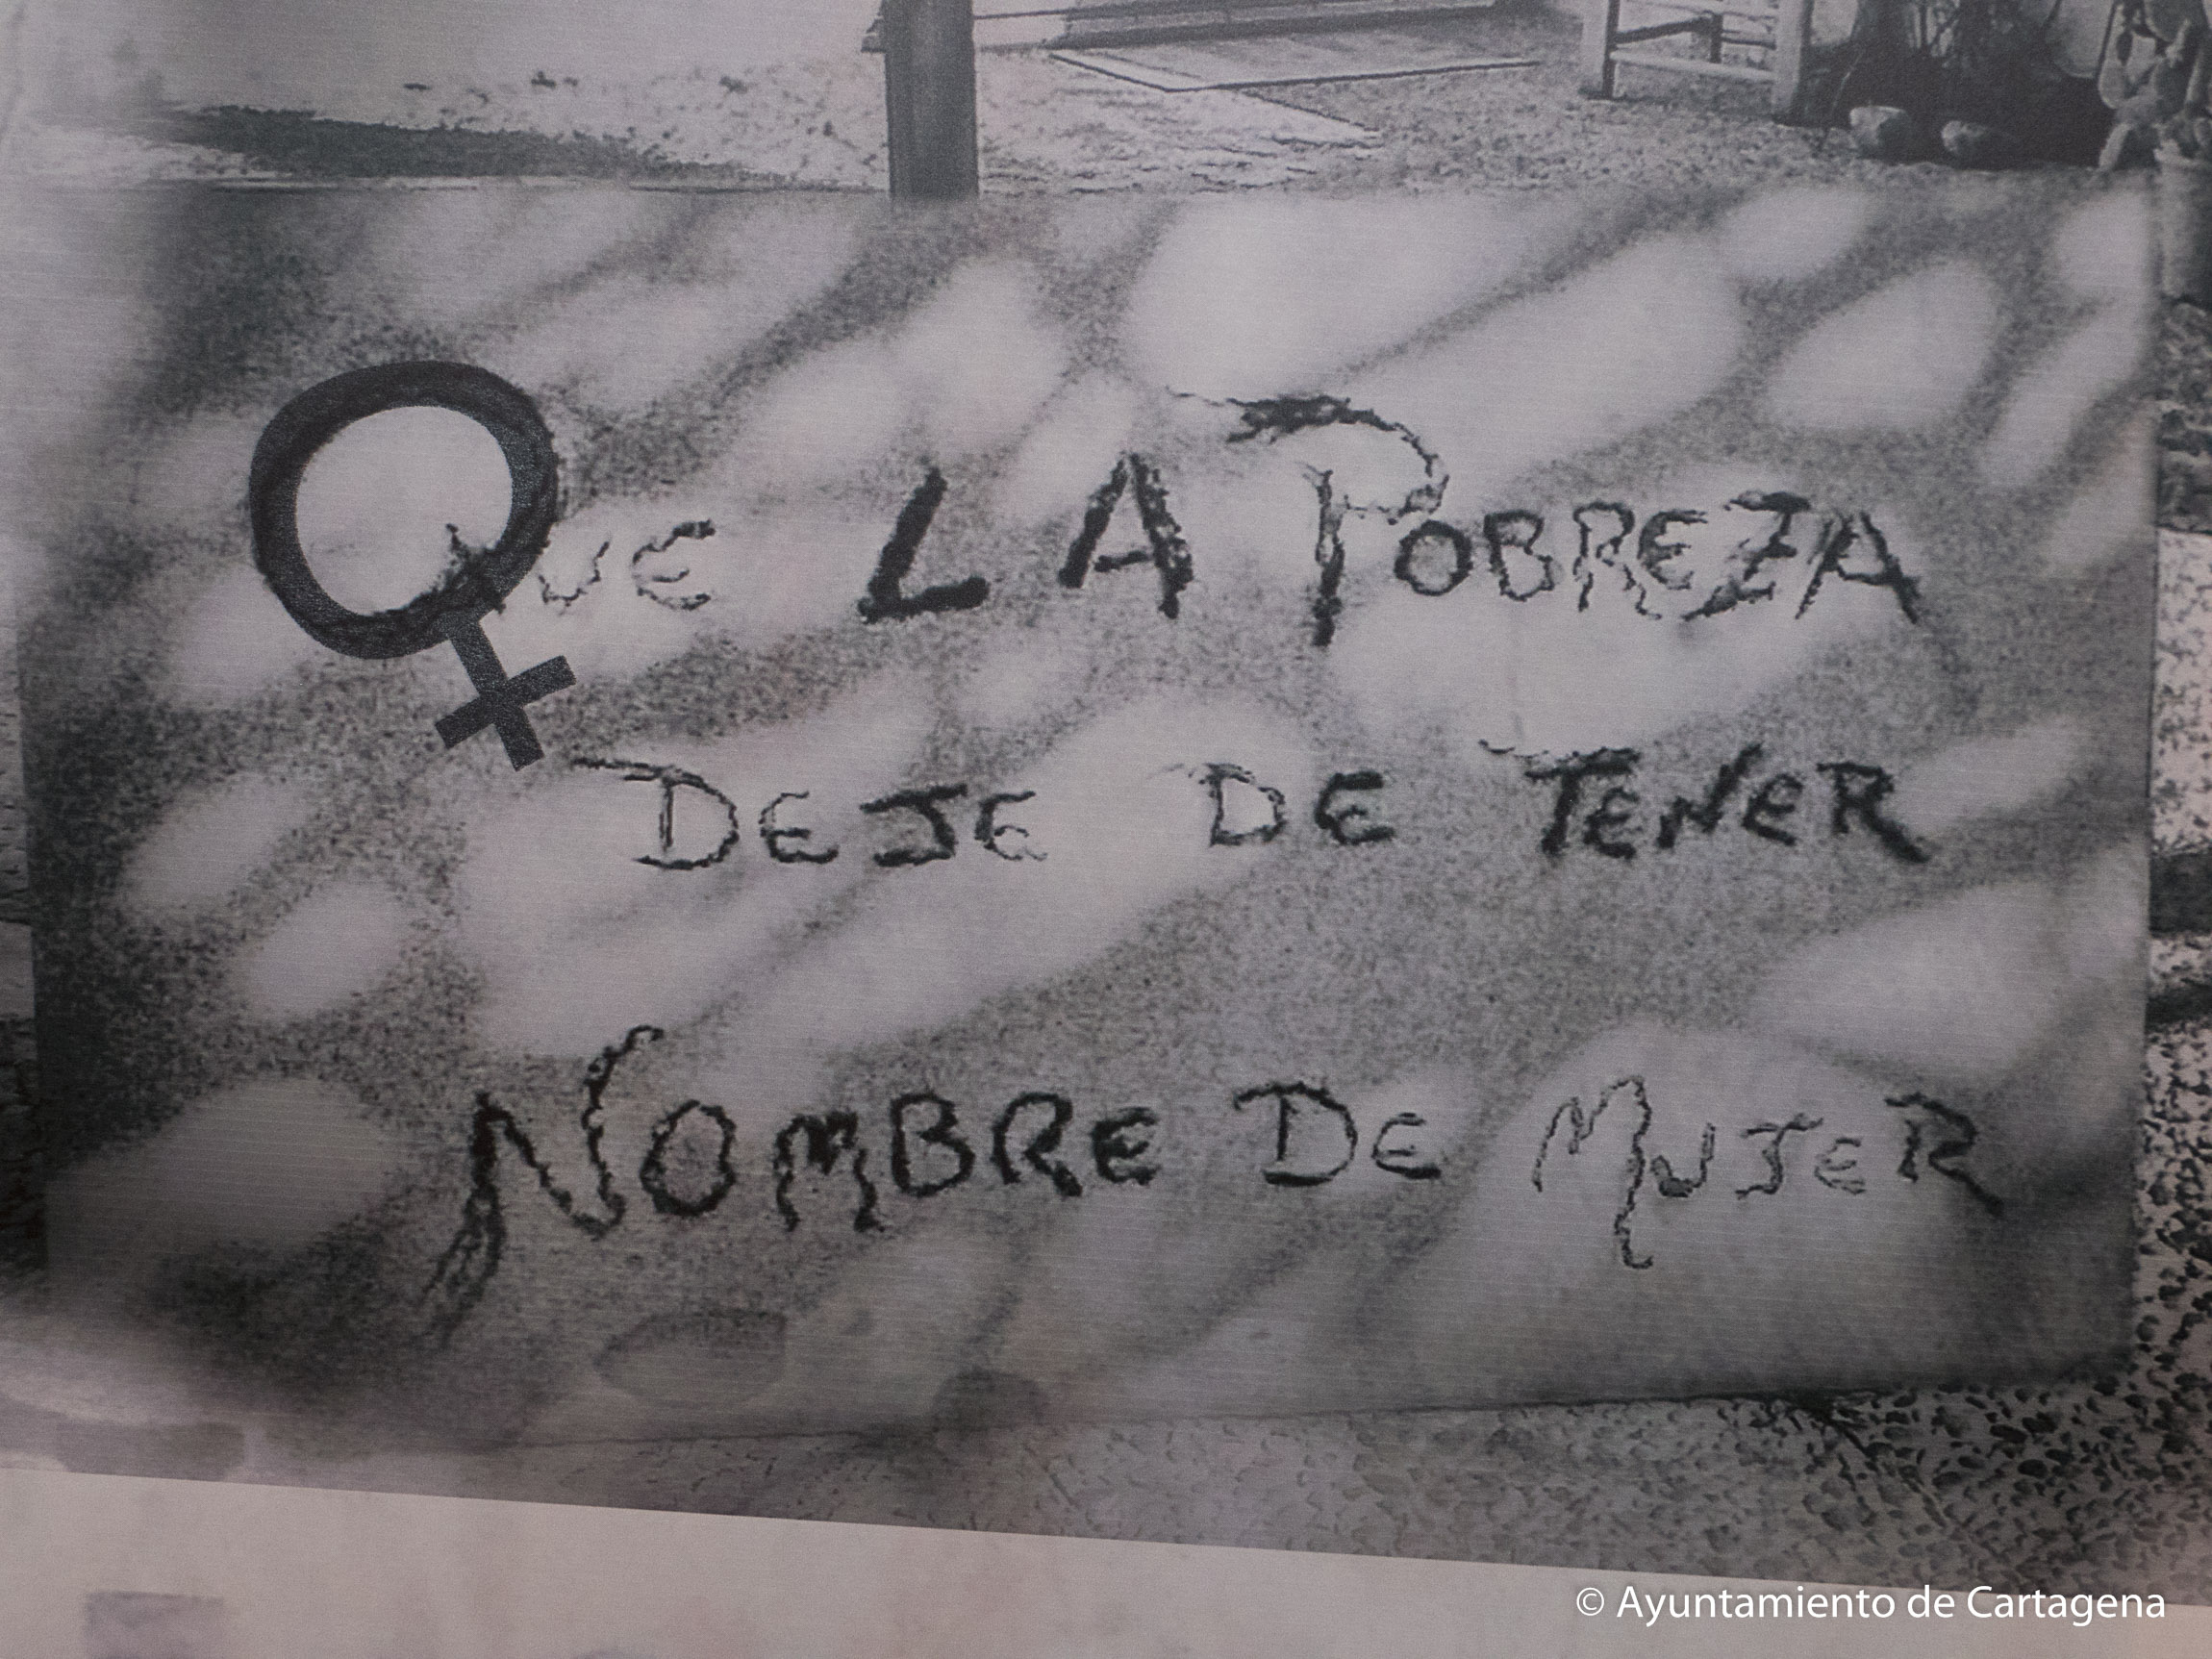 QUE LA POBREZA
DEJE DE TENER
NOMBRE DE MUJER
© Ayuntamiento de Cartagena